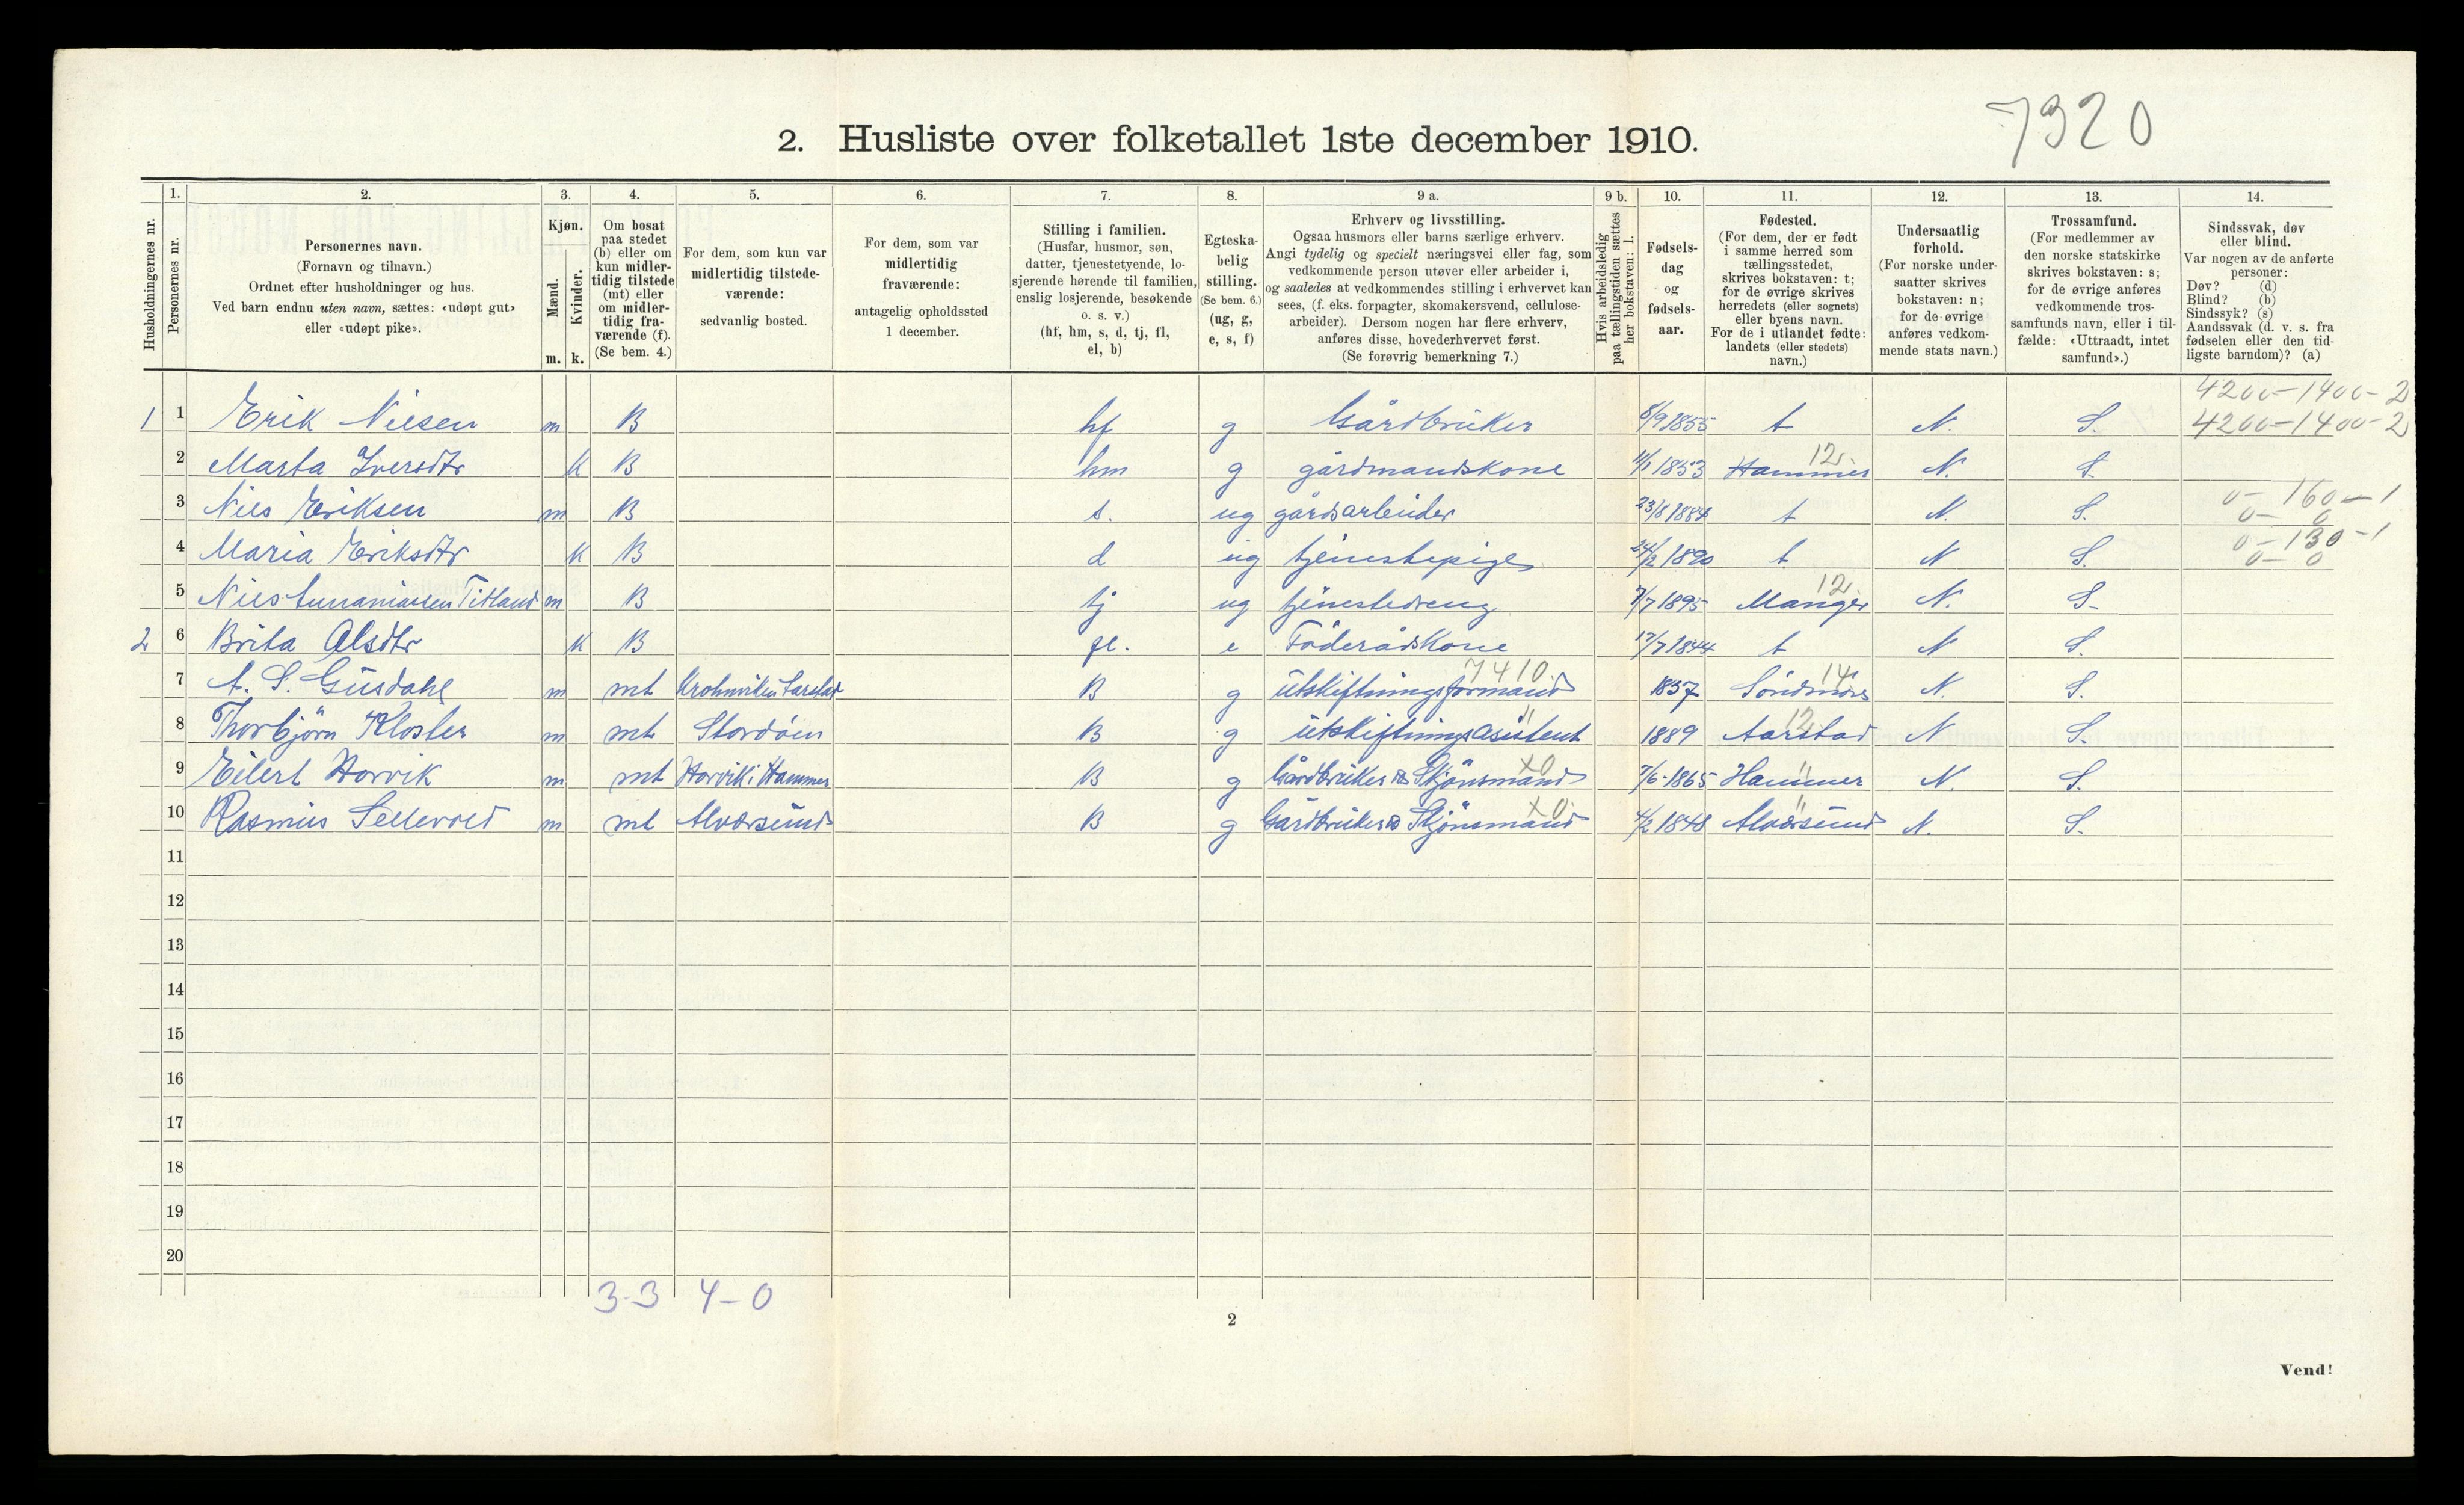 7320
2. Husliste over folketallet 1ste december 1910.
1. 2. 3. 4. 5. 6. 7. 8. 9 a. 9 b. 10. 11. 12. 13. 14.
Husholdningernes nr.
Personernes nr.
Personernes navn.
(Fornavn og tilnavn.)
Ordnet efter husholdninger og hus.
Ved barn endnu uten navn, sættes: «udøpt gut»
eller «udøpt pike».
Kjøn.
Mænd.
Kvinder.
m. k.
Om bosat
paa stedet
(b) eller om
kun midler-
tidig tilstede
(mt) eller
om midler-
tidig fra-
værende (f).
(Se bem. 4.)
For dem, som kun var
midlertidig tilstede-
værende:
sedvanlig bosted.
For dem, som var
midlertidig
fraværende:
antagelig opholdssted
1 december.
Stilling i familien.
(Husfar, husmor, søn,
datter, tjenestetyende, lo-
sjerende hørende til familien,
enslig losjerende, besøkende
o. s. v.)
(hf, hm, s, d, tj, fl,
el, b)
Egteska-
belig
stilling.
(Se bem. 6.)
(ug, g,
e, s, f)
Erhverv og livsstilling.
Ogsaa husmors eller barns særlige erhverv.
Angi tydelig og specielt næringsvei eller fag, som
vedkommende person utøver eller arbeider i,
og saaledes at vedkommendes stilling i erhvervet kan
sees, (f. eks. forpagter, skomakersvend, cellulose-
arbeider). Dersom nogen har flere erhverv,
anføres disse, hovederhvervet først.
(Se forøvrig bemerkning 7.)
Hvis arbeidsledig
paa tællingstiden sættes
her bokstaven: l.
Fødsels-
dag
og
fødsels-
aar.
Fødested.
(For dem, der er født
i samme herred som
tællingsstedet,
skrives bokstaven: t;
for de øvrige skrives
herredets (eller sognets)
eller byens navn.
For de i utlandet fødte:
landets (eller stedets)
navn.)
Undersaatlig
forhold.
(For norske under-
saatter skrives
bokstaven: n;
for de øvrige
anføres vedkom-
mende stats navn.)
Trossamfund.
(For medlemmer av
den norske statskirke
skrives bokstaven: s;
for de øvrige anføres
vedkommende tros-
samfunds navn, eller i til-
fælde: «Uttraadt, intet
samfund».)
Sindssvak, døv
eller blind.
Var nogen av de anførte
personer:
Døv? (d)
Blind? (b)
Sindssyk? (s)
Aandssvak (d. v. s. fra
fødselen eller den tid-
ligste barndom)? (a)
4200-1400-2
1 1 Erik Nilsen m B hf g Gårdbruker 8/9 1855 t N. S. 4200-1400-2
12
2 Marta Iversdtr k B hm g gårdmandskone 11/1 1853 Hammer N. S.
0-160-1
3 Nils Eriksen m B s. ug gårdsarbeider 23/8 1884 t N. S. 0-0
0-130-1
4 Maria Eriksdtr k B d ug tjenestepige 24/2 1890 t N S. 0-0
12
5 Nils Titland m B tj ug tjenestedreng 7/7 1895 Manger N. S.
2 6 Brita Olsdtr k B fl. e Föderådskone 17/7 1844 t N S.
7410 14
7 A. S. m mt B g utskiftningsformand 1857 Söndmöre N. S.
" 12
8 Thorbjörn Kloster m mt Stordöen B g utskiftningsasistent 1889 Aarstad N S.
X0 "
9 Eilert Horvik m mt Horvik i Hammer B g Gårdbruker & Skjönsmand 7/6-1865 Hammer N. S.
X0 "
10 Rasmus Sellevold m mt Alversund B g Gårdbruker & Skjönsmand 4/2 1848 Alversund N. S.
11
12
13
14
15
16
17
18
19
20
3-3 4-0
2
Vend!